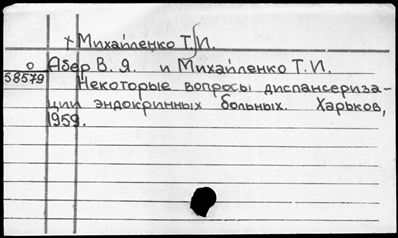 + Михайленко Т.И.
о Абер В. Я. и Михайленко Т.И.
58579 Некоторые вопросы диспансериза-
ции эндокринных больных. Харьков,
1959.